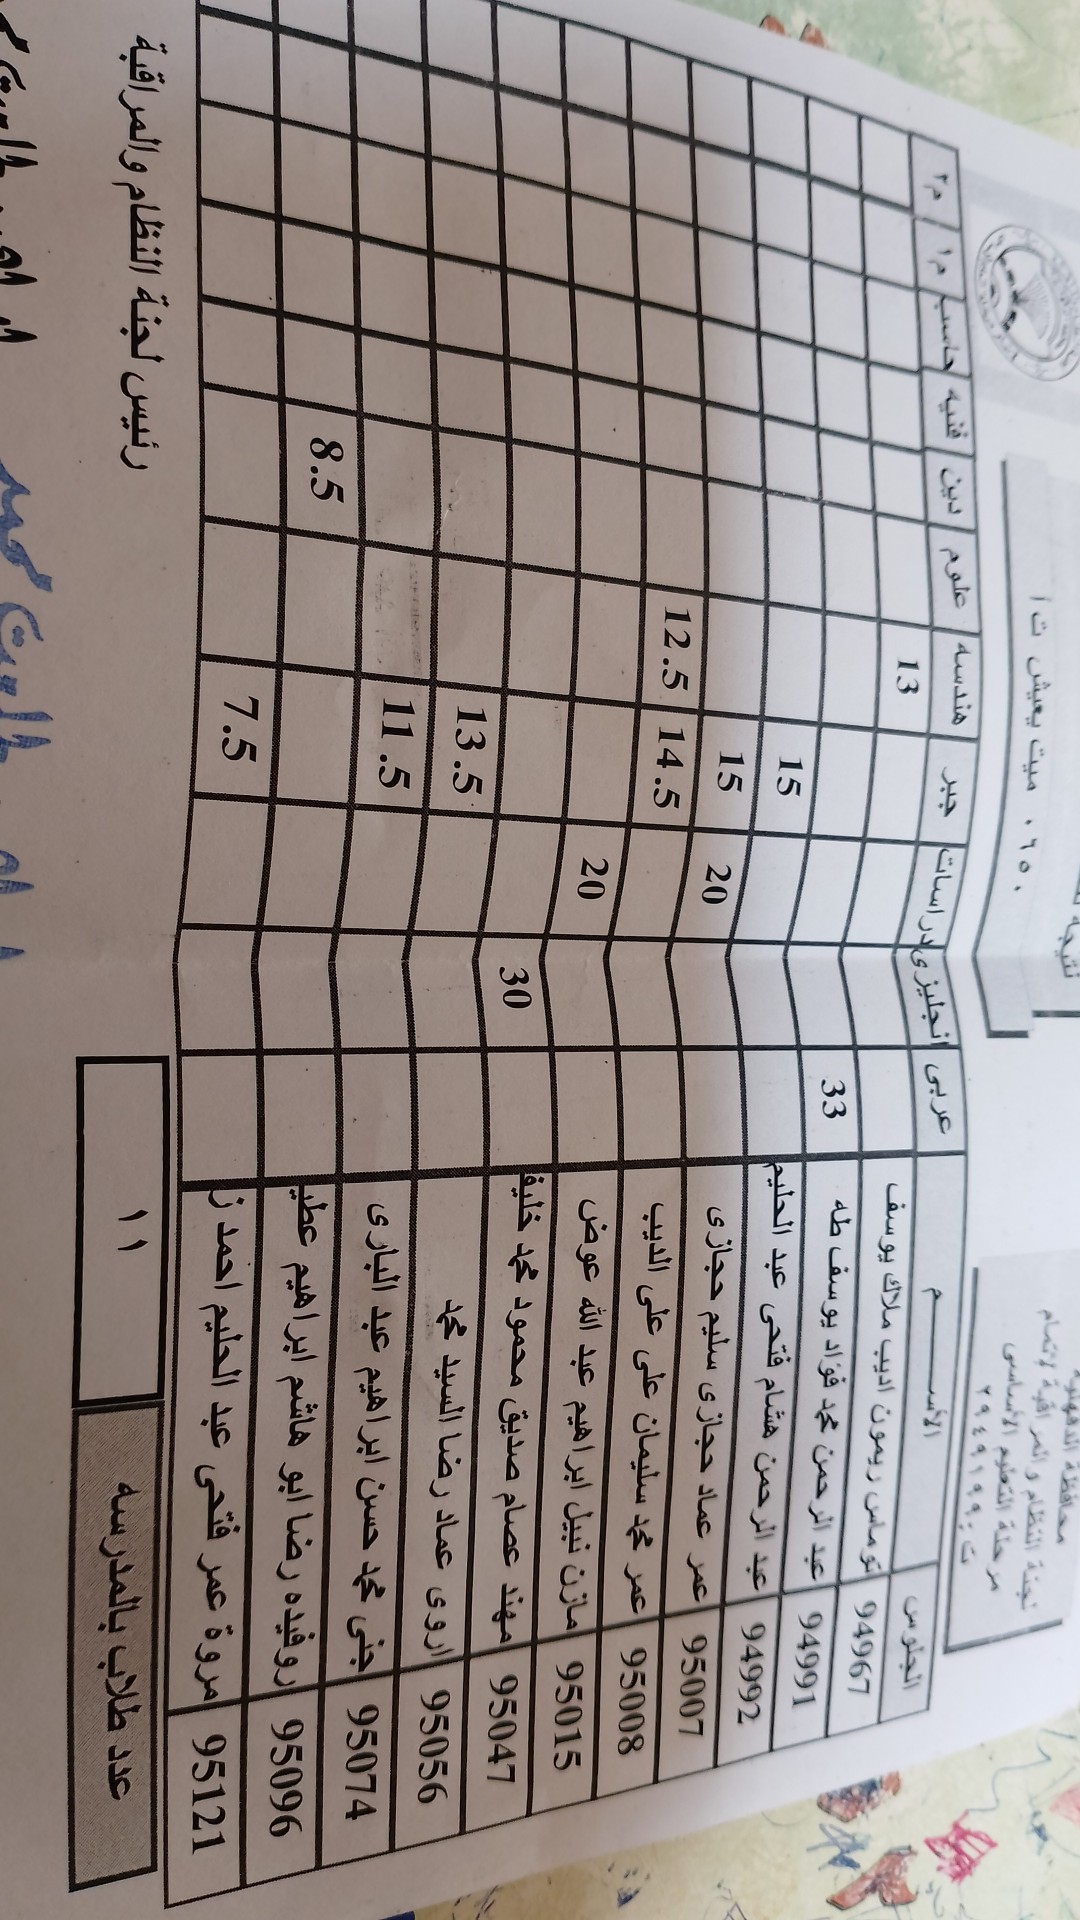 محافظة الدقهلية
لجنة النظام والمراقبة لإتمام
مرحلة التعليم الأساسى
ت: ٢٩٤٩١٩٩
نتيجة
٠٦٥ ميت يعيش ت ا
الجلوس الأســــــم عربى انجليزى دراسات جبر هندسه علوم دين فنيه حاسب م١ م٢
94967 توماس ريمون اديب ملاك يوسف 13
94991 عبد الرحمن محمد فؤاد يوسف طه 33
94992 عبد الرحمن هشام فتحى عبد الحليم 15
95007 عمر عماد حجازى سليم حجازى 20 15
95008 عمر محمد سليمان على على الديب 14.5 12.5
95015 مازن نبيل ابراهيم عبد الله عوض 20
95047 مهند عصام صديق محمود محمد خليف 30
95056 اروى عماد رضا السيد محمد 13.5
95074 جنى محمد حسن ابراهيم عبد البارى 11.5
95096 روفيده رضا ابو هاشم ابراهيم عطيـ 8.5
95121 مروة عمر فتحى عبد الحليم احمد ز 7.5
عدد طلاب بالمدرسه ١١
رئيس لجنة النظام والمراقبة